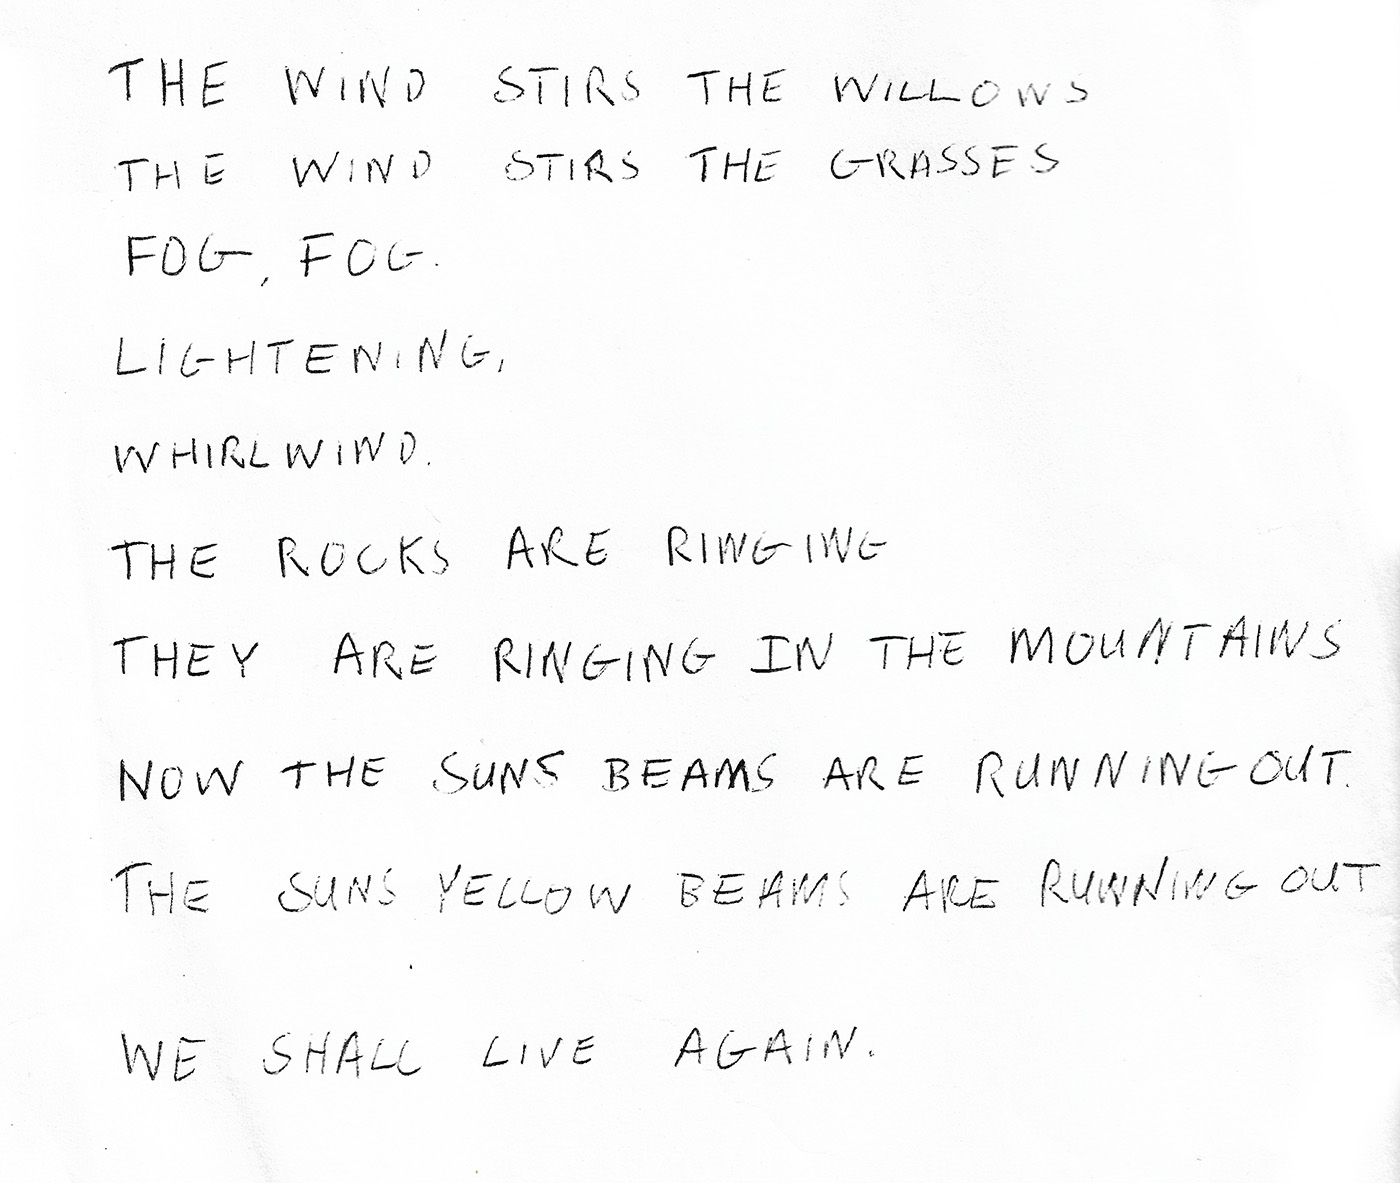 THE WIND STIRS THE WILLOWS
THE WIND STIRS THE GRASSES
FOG, FOG.
LIGHTENING,
WHIRLWIND.
THE ROCKS ARE RINGING
THEY ARE RINGING IN THE MOUNTAINS
NOW THE SUNS BEAMS ARE RUNNING OUT.
THE SUNS YELLOW BEAMS ARE RUNNING OUT
WE SHALL LIVE AGAIN.